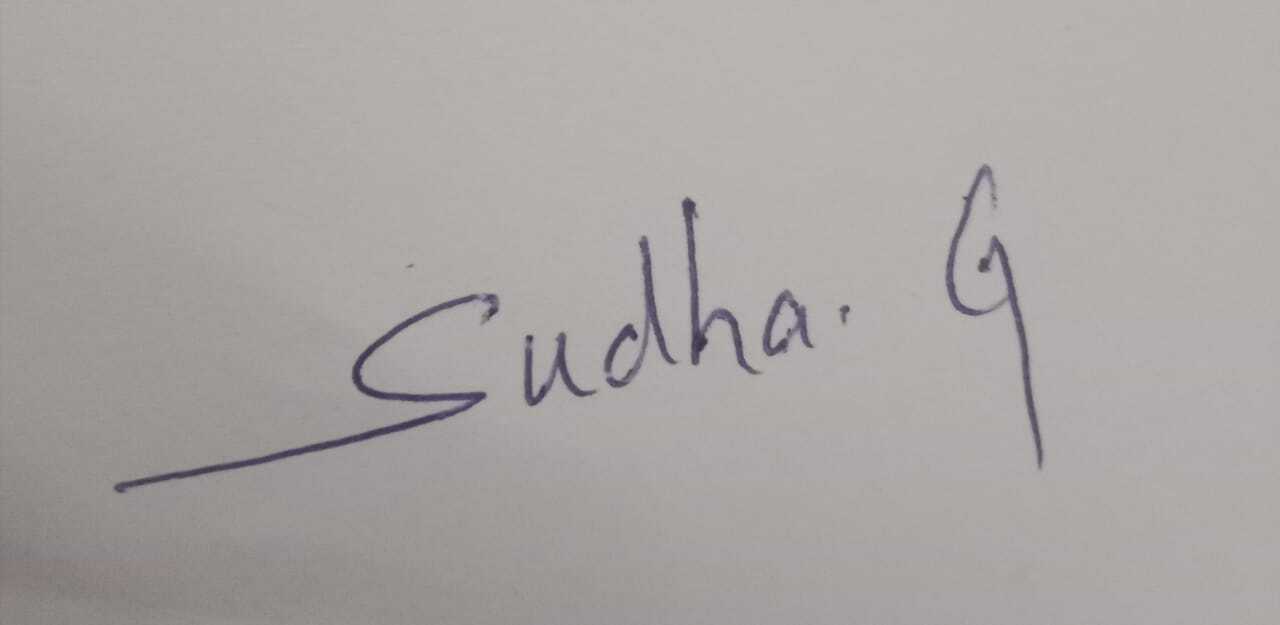 Sudha. G